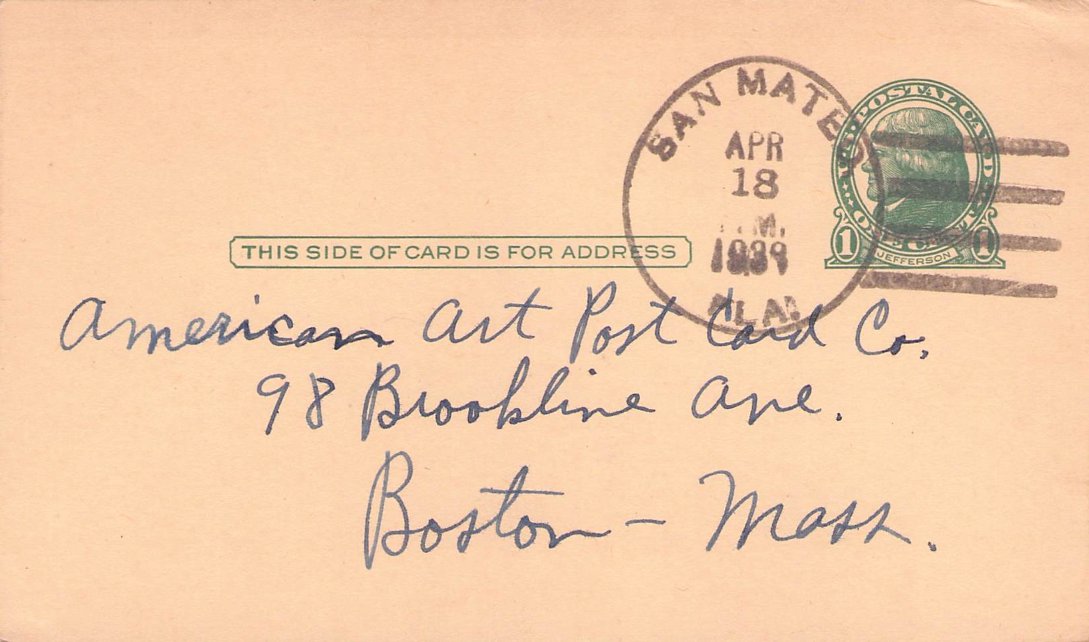 SAN MATEO
APR
18
M.
FLA.
U.S. POSTAL CARD
ONE CENT
1 1
JEFFERSON
THIS SIDE OF CARD IS FOR ADDRESS
American Art Post Card Co.
98 Brookline Ave.
Boston - Mass.